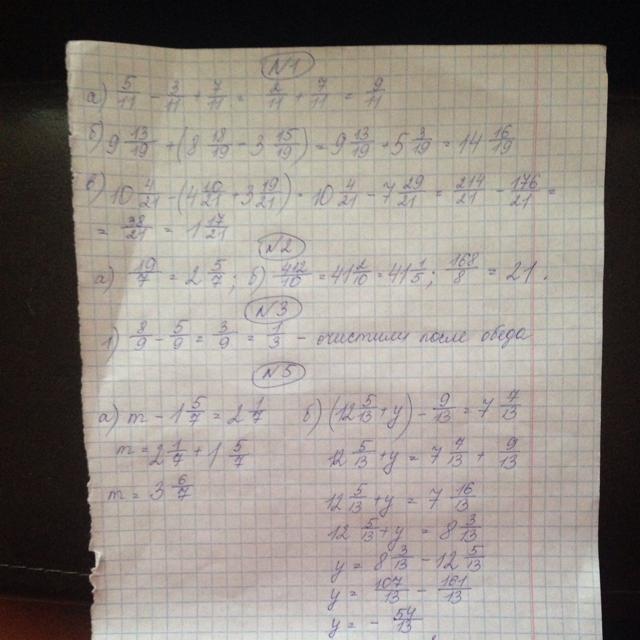 №1
а) 5/11 - 3/11 + 7/11 = 2/11 + 7/11 = 9/11
б) 9 13/19 + (8 18/19 - 3 15/19) = 9 13/19 + 5 3/19 = 14 16/19
в) 10 4/21 - (4 10/21 + 3 19/21) = 10 4/21 - 7 29/21 = 214/21 - 176/21 =
= 38/21 = 1 17/21
№2
а) 19/7 = 2 5/7; б) 412/10 = 41 2/10 = 41 1/5; 168/8 = 21.
№3
1) 8/9 - 5/9 = 3/9 = 1/3 - очистили после обеда
№5
а) m - 1 5/7 = 2 1/7
m = 2 1/7 + 1 5/7
m = 3 6/7
б) (12 5/13 + y) - 9/13 = 7 7/13
12 5/13 + y = 7 7/13 + 9/13
12 5/13 + y = 7 16/13
12 5/13 + y = 8 3/13
y = 8 3/13 - 12 5/13
y = 107/13 - 161/13
y = - 54/13